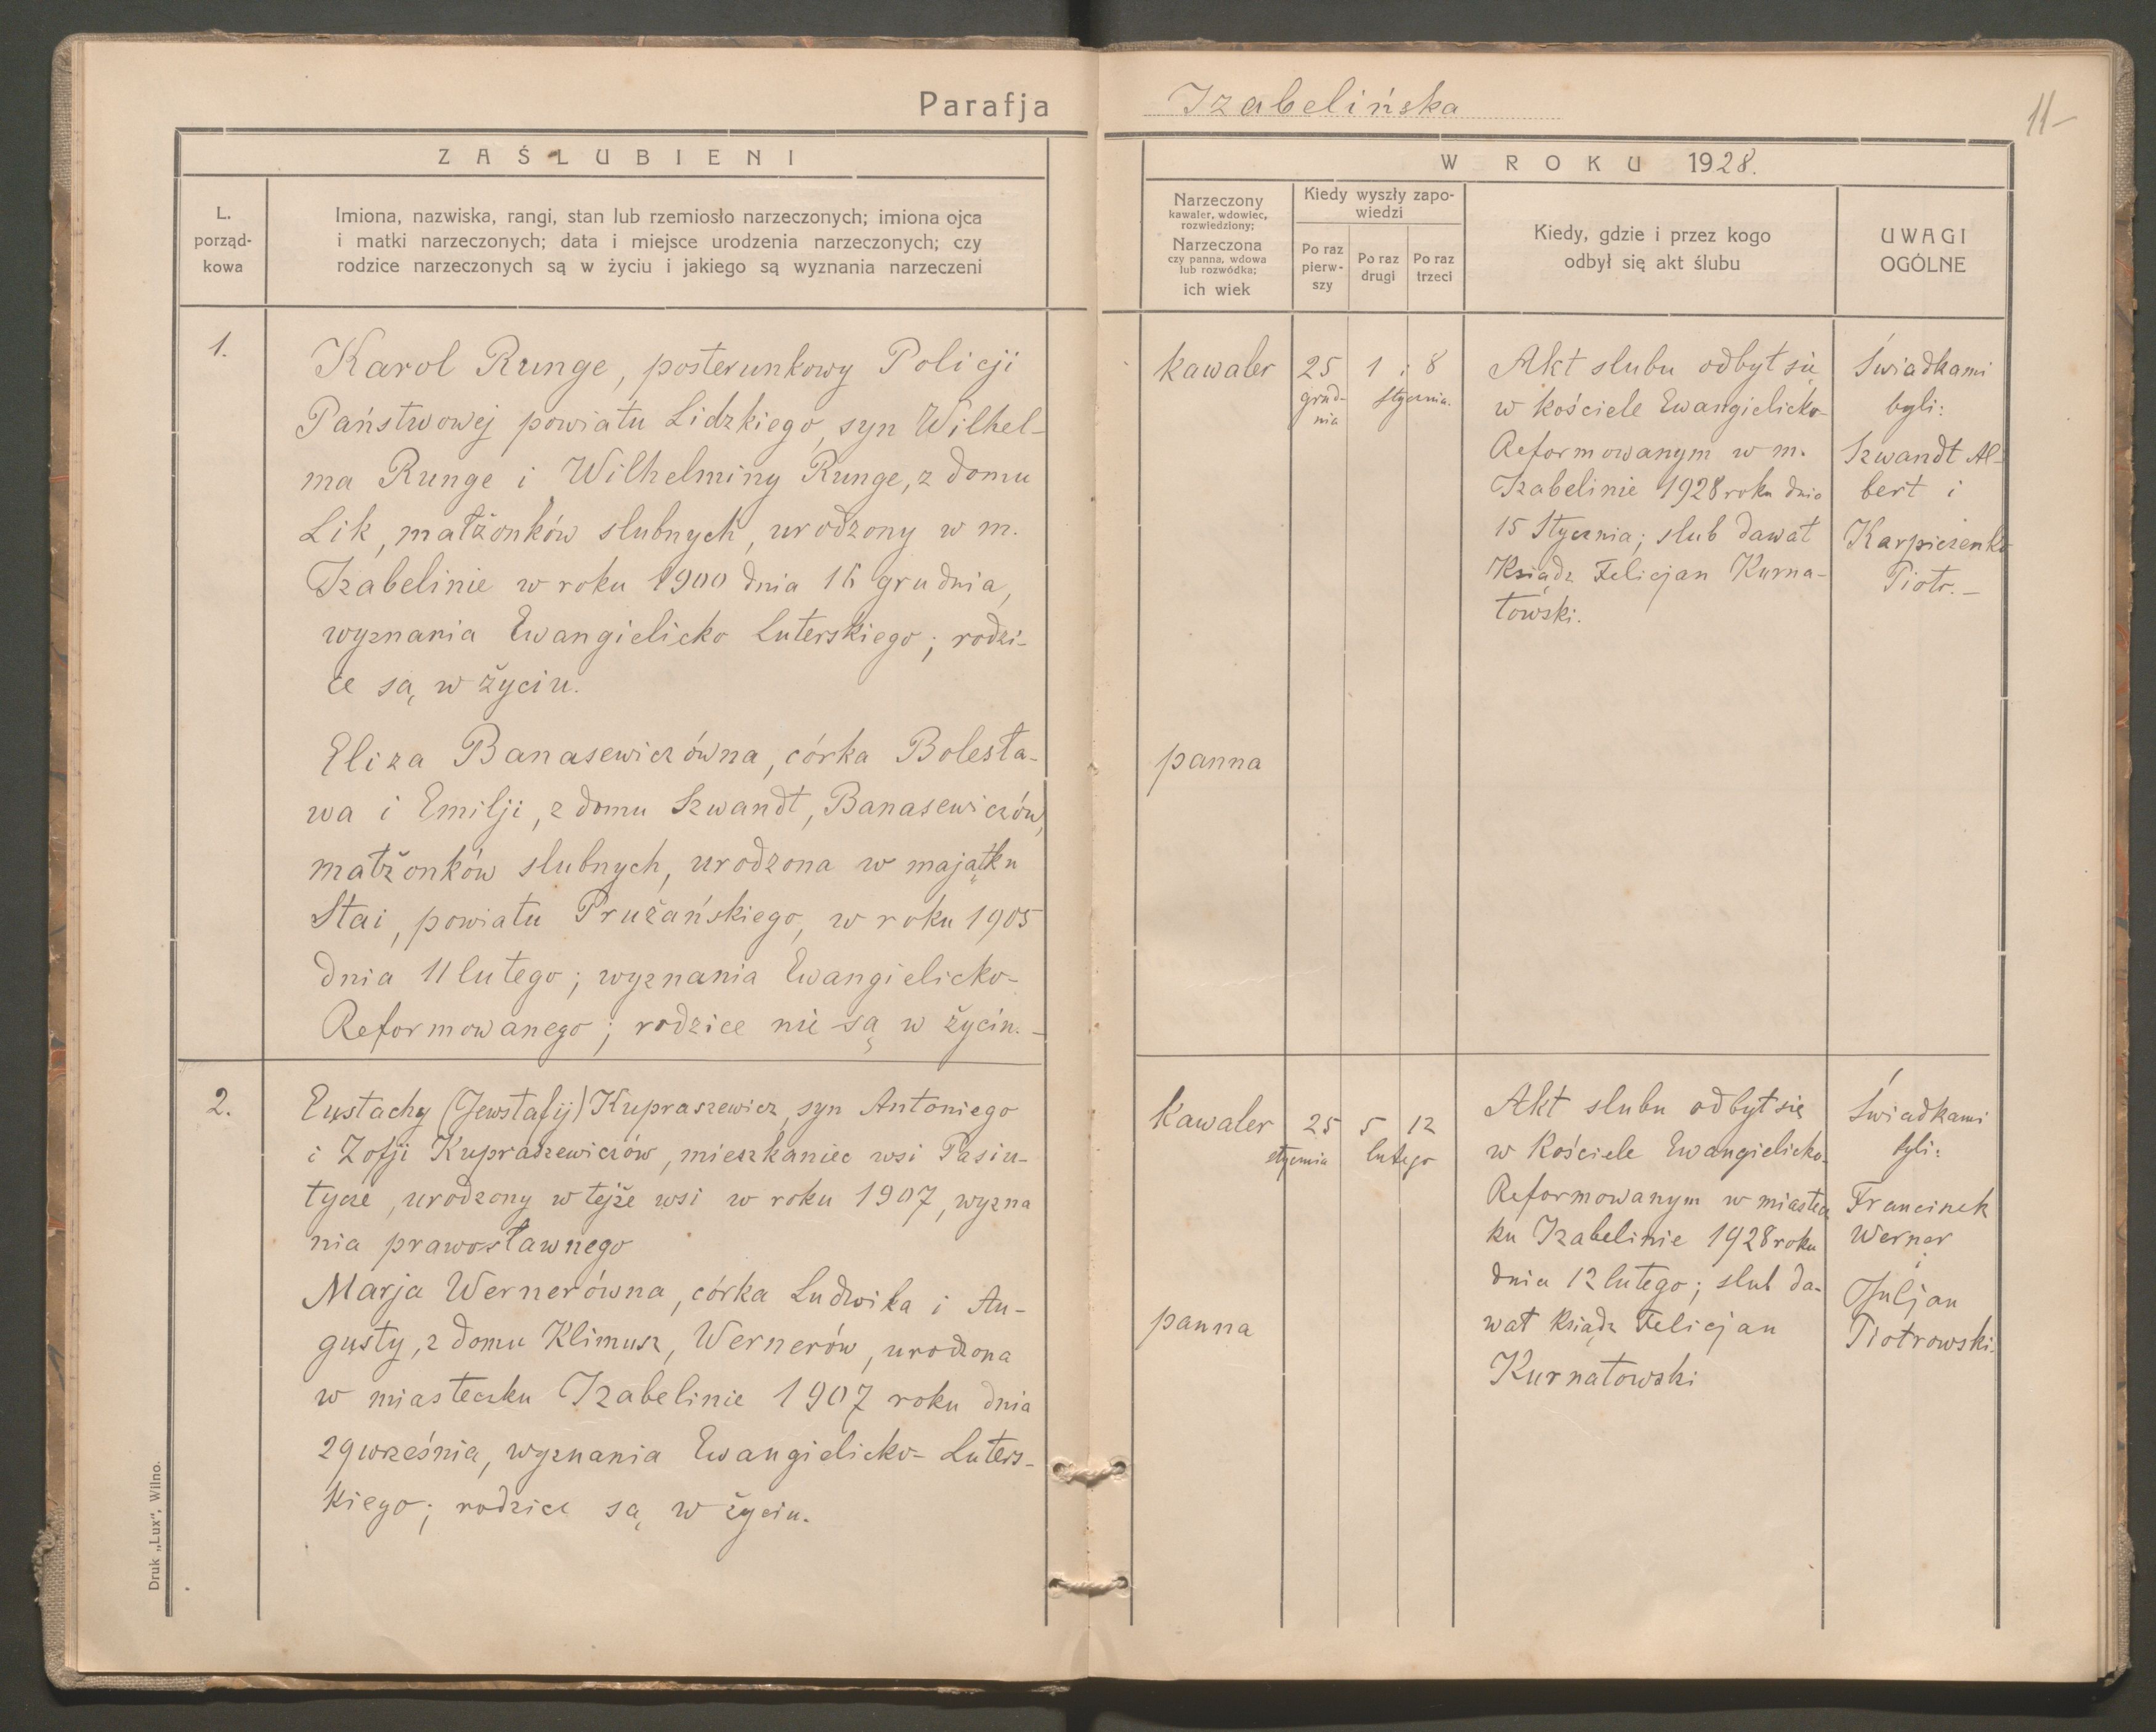 Parafja
Izabelińska
11-
ZAŚLUBIENI
W ROKU 1928.
L.
porząd-
kowa
Imiona, nazwiska, rangi, stan lub rzemiosło narzeczonych; imiona ojca
i matki narzeczonych; data i miejsce urodzenia narzeczonych; czy
rodzice narzeczonych są w życiu i jakiego są wyznania narzeczeni
Narzeczony
kawaler, wdowiec,
rozwiedziony;
Narzeczona
czy panna, wdowa
lub rozwódka;
ich wiek
Kiedy wyszły zapo-
wiedzi
Po raz
pierw-
szy
Po raz
drugi
Po raz
trzeci
Kiedy, gdzie i przez kogo
odbył się akt ślubu
UWAGI
OGÓLNE
1.
Karol Runge, posterunkowy Policji
Państwowej powiatu Lidzkiego, syn Wilhel-
ma Runge i Wilhelminy Runge, z domu
Lik, małżonków slubnych, urodzony w m.
Izabelinie w roku 1900 dnia 16 grudnia,
wyznania Ewangielicko Luterskiego; rodzi-
ce są w życiu.
Eliza Banasewiczówna, córka Bolesła-
wa i Emilji, z domu Szwandt, Banasewiczów,
małżonków slubnych, urodzona w majątku
Stai, powiatu Prużańskiego, w roku 1905
dnia 11 lutego; wyznania Ewangielicko-
Reformowanego; rodzice nie są w życiu.-
kawaler
panna
25
grud-
nia
1 i 8
stycznia.
Akt slubu odbył się
w kościele Ewangielicko-
Reformowanym w m.
Izabelinie 1928 roku dnia
15 Stycznia; slub dawał
Ksiądz Felicjan Kurna-
towski.
Świadkami
byli:
Szwandt Al-
bert i
Karpiczenko
Piotr.-
2.
Eustachy (Jewstafij) Kupraszewicz, syn Antoniego
i Zofji Kupraszewiczów, mieszkaniec wsi Pasiu-
tycze, urodzony w tejże wsi w roku 1907, wyzna
nia prawosławnego
Marja Wernerówna, córka Ludwika i Au-
gusty, z domu Klimusz, Wernerów, urodzona
w miasteczku Izabelinie 1907 roku dnia
29 września, wyznania Ewangielicko-Luters-
kiego; rodzice są w życiu.
kawaler
panna
25 5 12
stycznia lutego
Akt slubu odbył się
w Kościele Ewangielicko-
Reformowanym w miastecz
ku Izabelinie 1928 roku
dnia 12 lutego; slub da-
wał Ksiądz Felicjan
Kurnatowski
Świadkami
byli:
Franciszek
Werner
i
Juljan
Piotrowski.
Druk „Lux", Wilno.